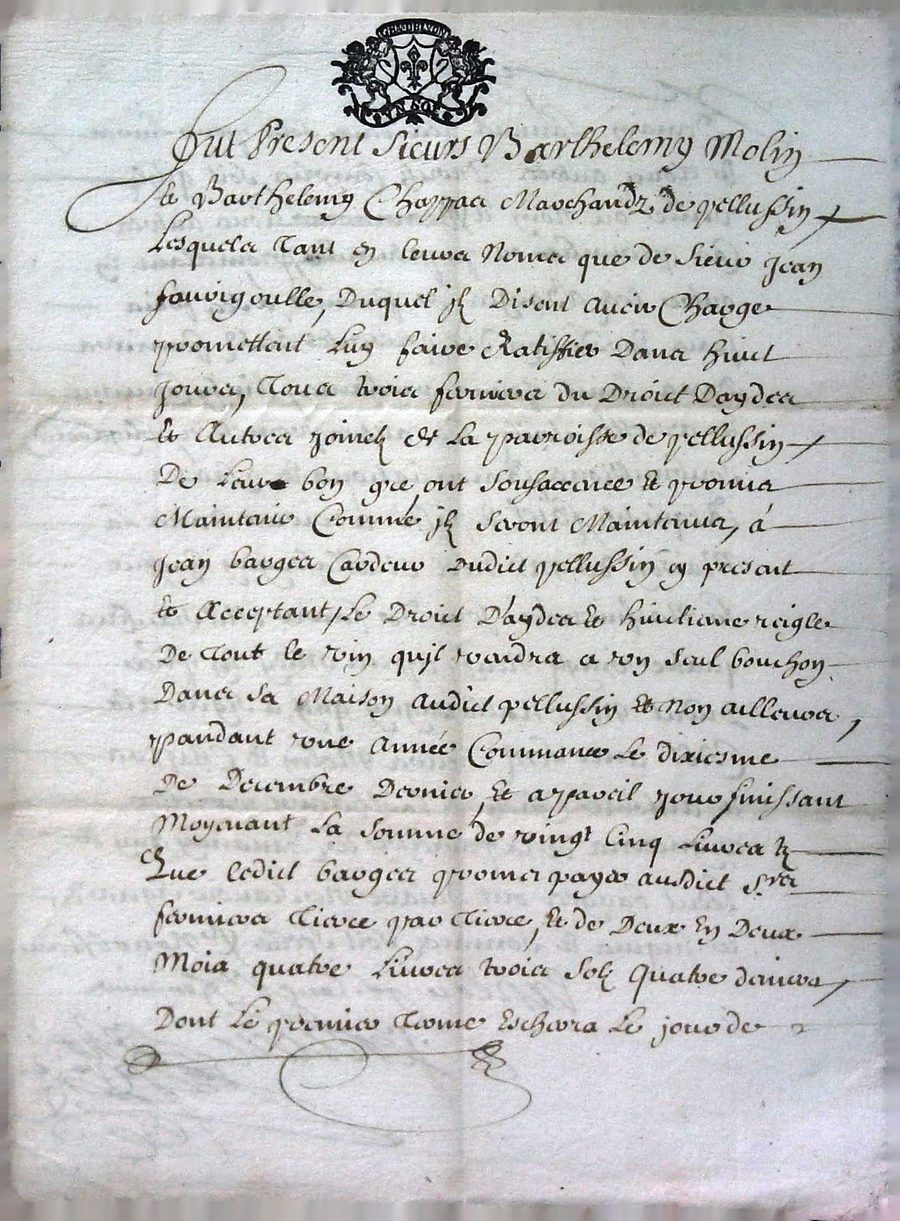 GEN DE LYON
VN SOL
Fut Present Sieurs Barthelemy Molin
Et Barthelemy Chappas Marchandz de pellussin
Lesquels Tant en leurs Noms que de Sieur Jean
favrigoulle, Duquel jlz Disent avoir Charge
promettent Luy faire Ratiffier Dans huict
Jours, Tous trois fermiers du Droict Daydes
Et Autres joinctz de La parroisse de pellussin
De Leur bon gre, ont Sousaccencé Et promis
Maintenir Comme jlz Seront Maintenus, à
Jean barges Cardeur Dudict pellussin cy present
Et Acceptant, Le Droict D'aydes Et huictiesme reigle
De Tout le vin qujl vendra a vn seul bouchon
Dans sa Maison audict pellussin Et Non ailleurs,
pandant vne Année Commancee Le dixiesme
De Decembre Dernier, Et a pareil jour finissant
Moyenant La Somme de vingt Cinq Livres tz
Que ledict barges promis payer ausdict Srs
fermiers Tierce par Tierce, Et de Deux En Deux
Mois quatre Livres trois Solz Quatre deniers
Dont Le premier Terme Eschera Le jour de